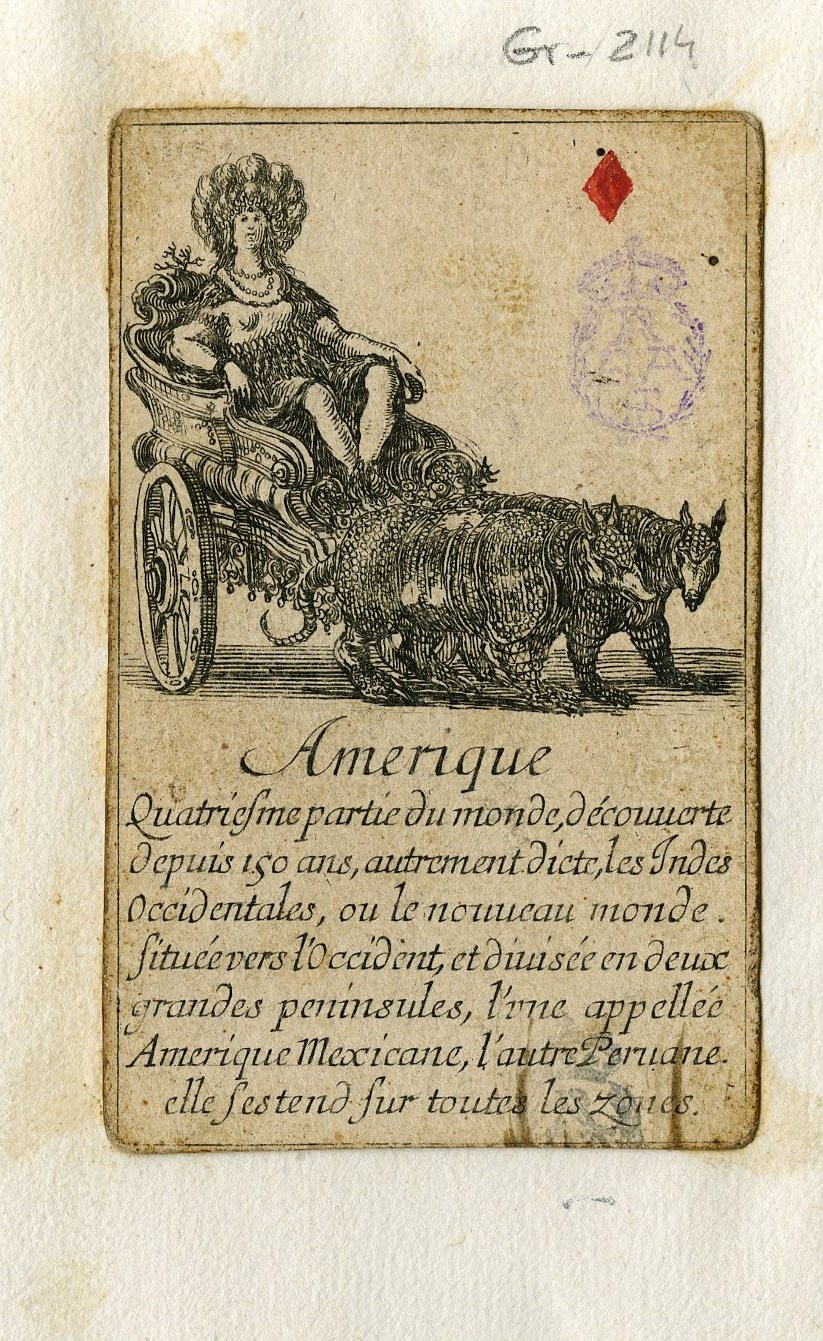 Gr-/2114
Amerique
Quatriesme partie du monde, découuerte
depuis 150 ans, autrement dicte, les Indes
Occidentales, ou le nouueau monde.
située vers l'Occident, et diuisée en deux
grandes peninsules, l'vne appellée
Amerique Mexicane, l'autre Peruane.
elle s'estend sur toutes les zones.